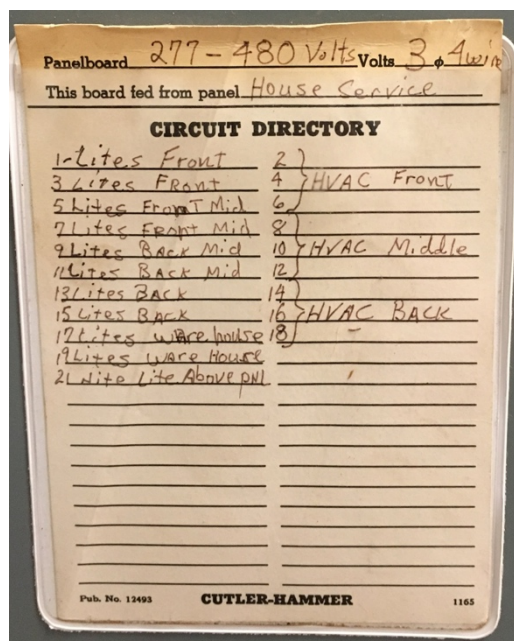 Panelboard 277-480 Volts Volts 3 φ 4 wire
This board fed from panel House Service
CIRCUIT DIRECTORY
1-Lites Front
3 Lites Front
5 Lites Front Mid
7 Lites Front Mid
9 Lites Back Mid
11 Lites Back Mid
13 Lites Back
15 Lites Back
17 Lites Warehouse
19 Lites Ware House
21 Nite Lite Above PNL
2
4 HVAC Front
6
8
10 HVAC Middle
12
14
16 HVAC BACK
18
Pub. No. 12493 CUTLER-HAMMER 1165